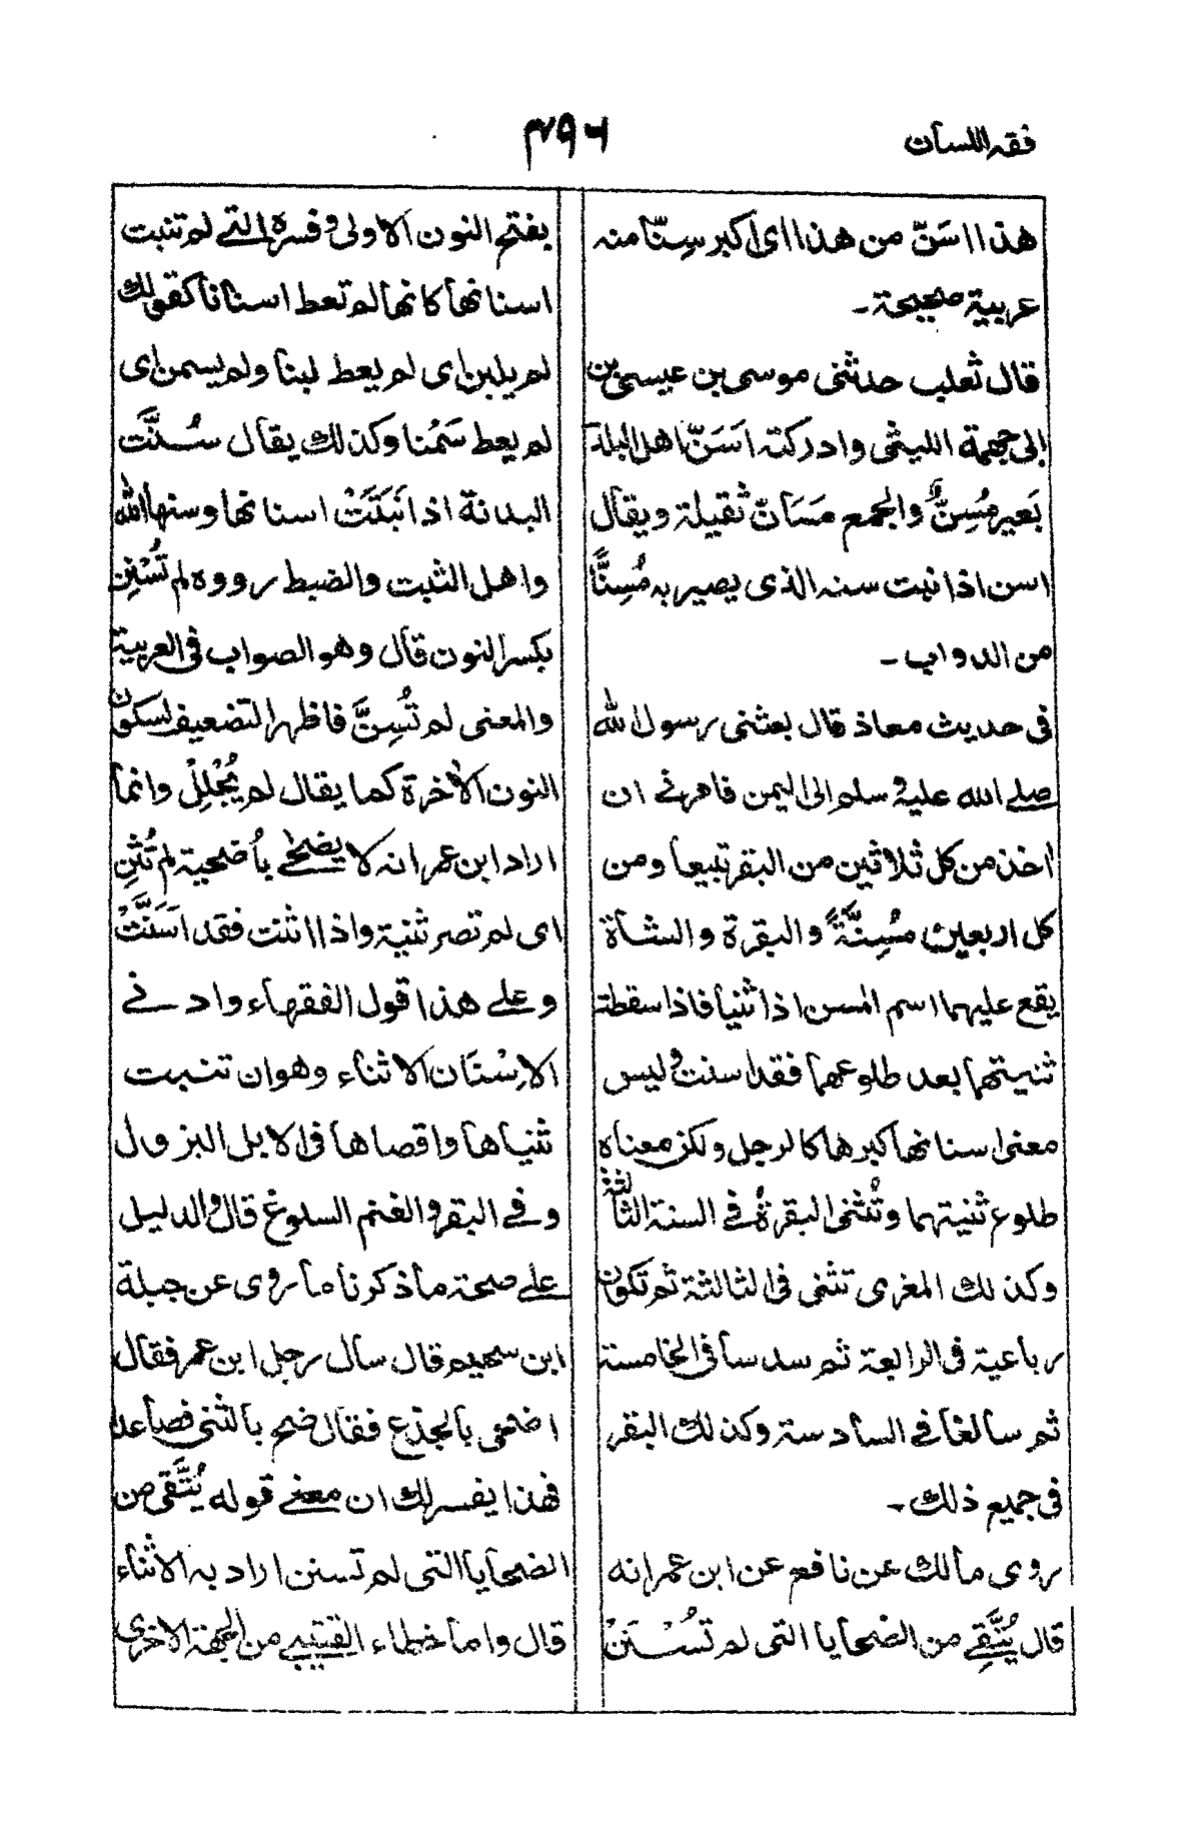 فقه اللسان
٣٩٦
هذا اسَنّ من هذا ای اکبر سِنّا منه
عربیة صحیحة۔
قال ثعلب حدثنی موسی بن عیسی بن
ابی جهمة اللیثی وادرکته اَسَنّ اهل البلد
بَعیر مُسِنٌّ والجمع مَسَانّ ثقیلة ویقال
اسن اذا نبت سنه الذی یصیر به مُسِنًّا
من الدواب۔
فی حدیث معاذ قال بعثنی رسول الله
صلے الله علیه وسلم الی الیمن فامرنے ان
اخذ من کل ثلاثین من البقر تبیعا ومن
کل اربعین مُسِنَّةً والبقرة والشاة
یقع علیهما اسم المسن اذا ثنیا فاذا سقطت
ثنیتهما بعد طلوعها فقد اسنت ولیس
معنی اسنانها کبرها کالرجل ولکن معناه
طلوع ثنیتهما وتُثنی البقرةُ فے السنة الثالثة
وکذلك المغری تثنی فی الثالثة ثم تکون
رباعیة فی الرابعة ثم سدسا فی الخامسة
ثم سالغا فے السادسة وکذلك البقر
فی جمیع ذلك۔
روی مالك عن نافع عن ابن عمر انه
قال یُتَّقِے من الضحایا التی لم تُسْنَنْ
بفتح النون الاولی وفسره التے لم تنبت
اسنانها کانها لم تعط اسنانا کقولك
لم یلبن ای لم یعط لبنا ولم یسمن ای
لم یعط سَمْنا وکذلك یقال سُنَّت
البدانة اذا نَبَتَتْ اسنانها وسنها الله
واهل الثبت والضبط رووه لم تُسْنِن
بکسر النون قال وهو الصواب فی العربیة
والمعنی لم تُسِنَّ فاظهر التضعیف لسکون
النون الأخرة کما یقال لم یُجْلِلْ وانما
اراد ابن عمر انه لا یضحے بأُضحیة لم تُثْنِ
ای لم تصر ثنیة واذا اثنت فقد اَسَنَّتْ
وعلے هذا قول الفقهاء وادنے
الاِسْنَان الاثناء وهو ان تنبت
ثنیاها واقصاها فی الابل البزول
وفے البقر والغنم السلوغ قال والدلیل
علے صحة ما ذکرنا ما روی عن جبلة
ابن سحیم قال سأل رجل ابن عمر فقال
اضحی بالجذع فقال ضح بالثنی فصاعدا
فهذا یفسر لك ان معنے قوله یُتَّقی من
الضحایا التی لم تسنن اراد به الاثناء
قال واما خطاء القتیبے من الجهة الاخری